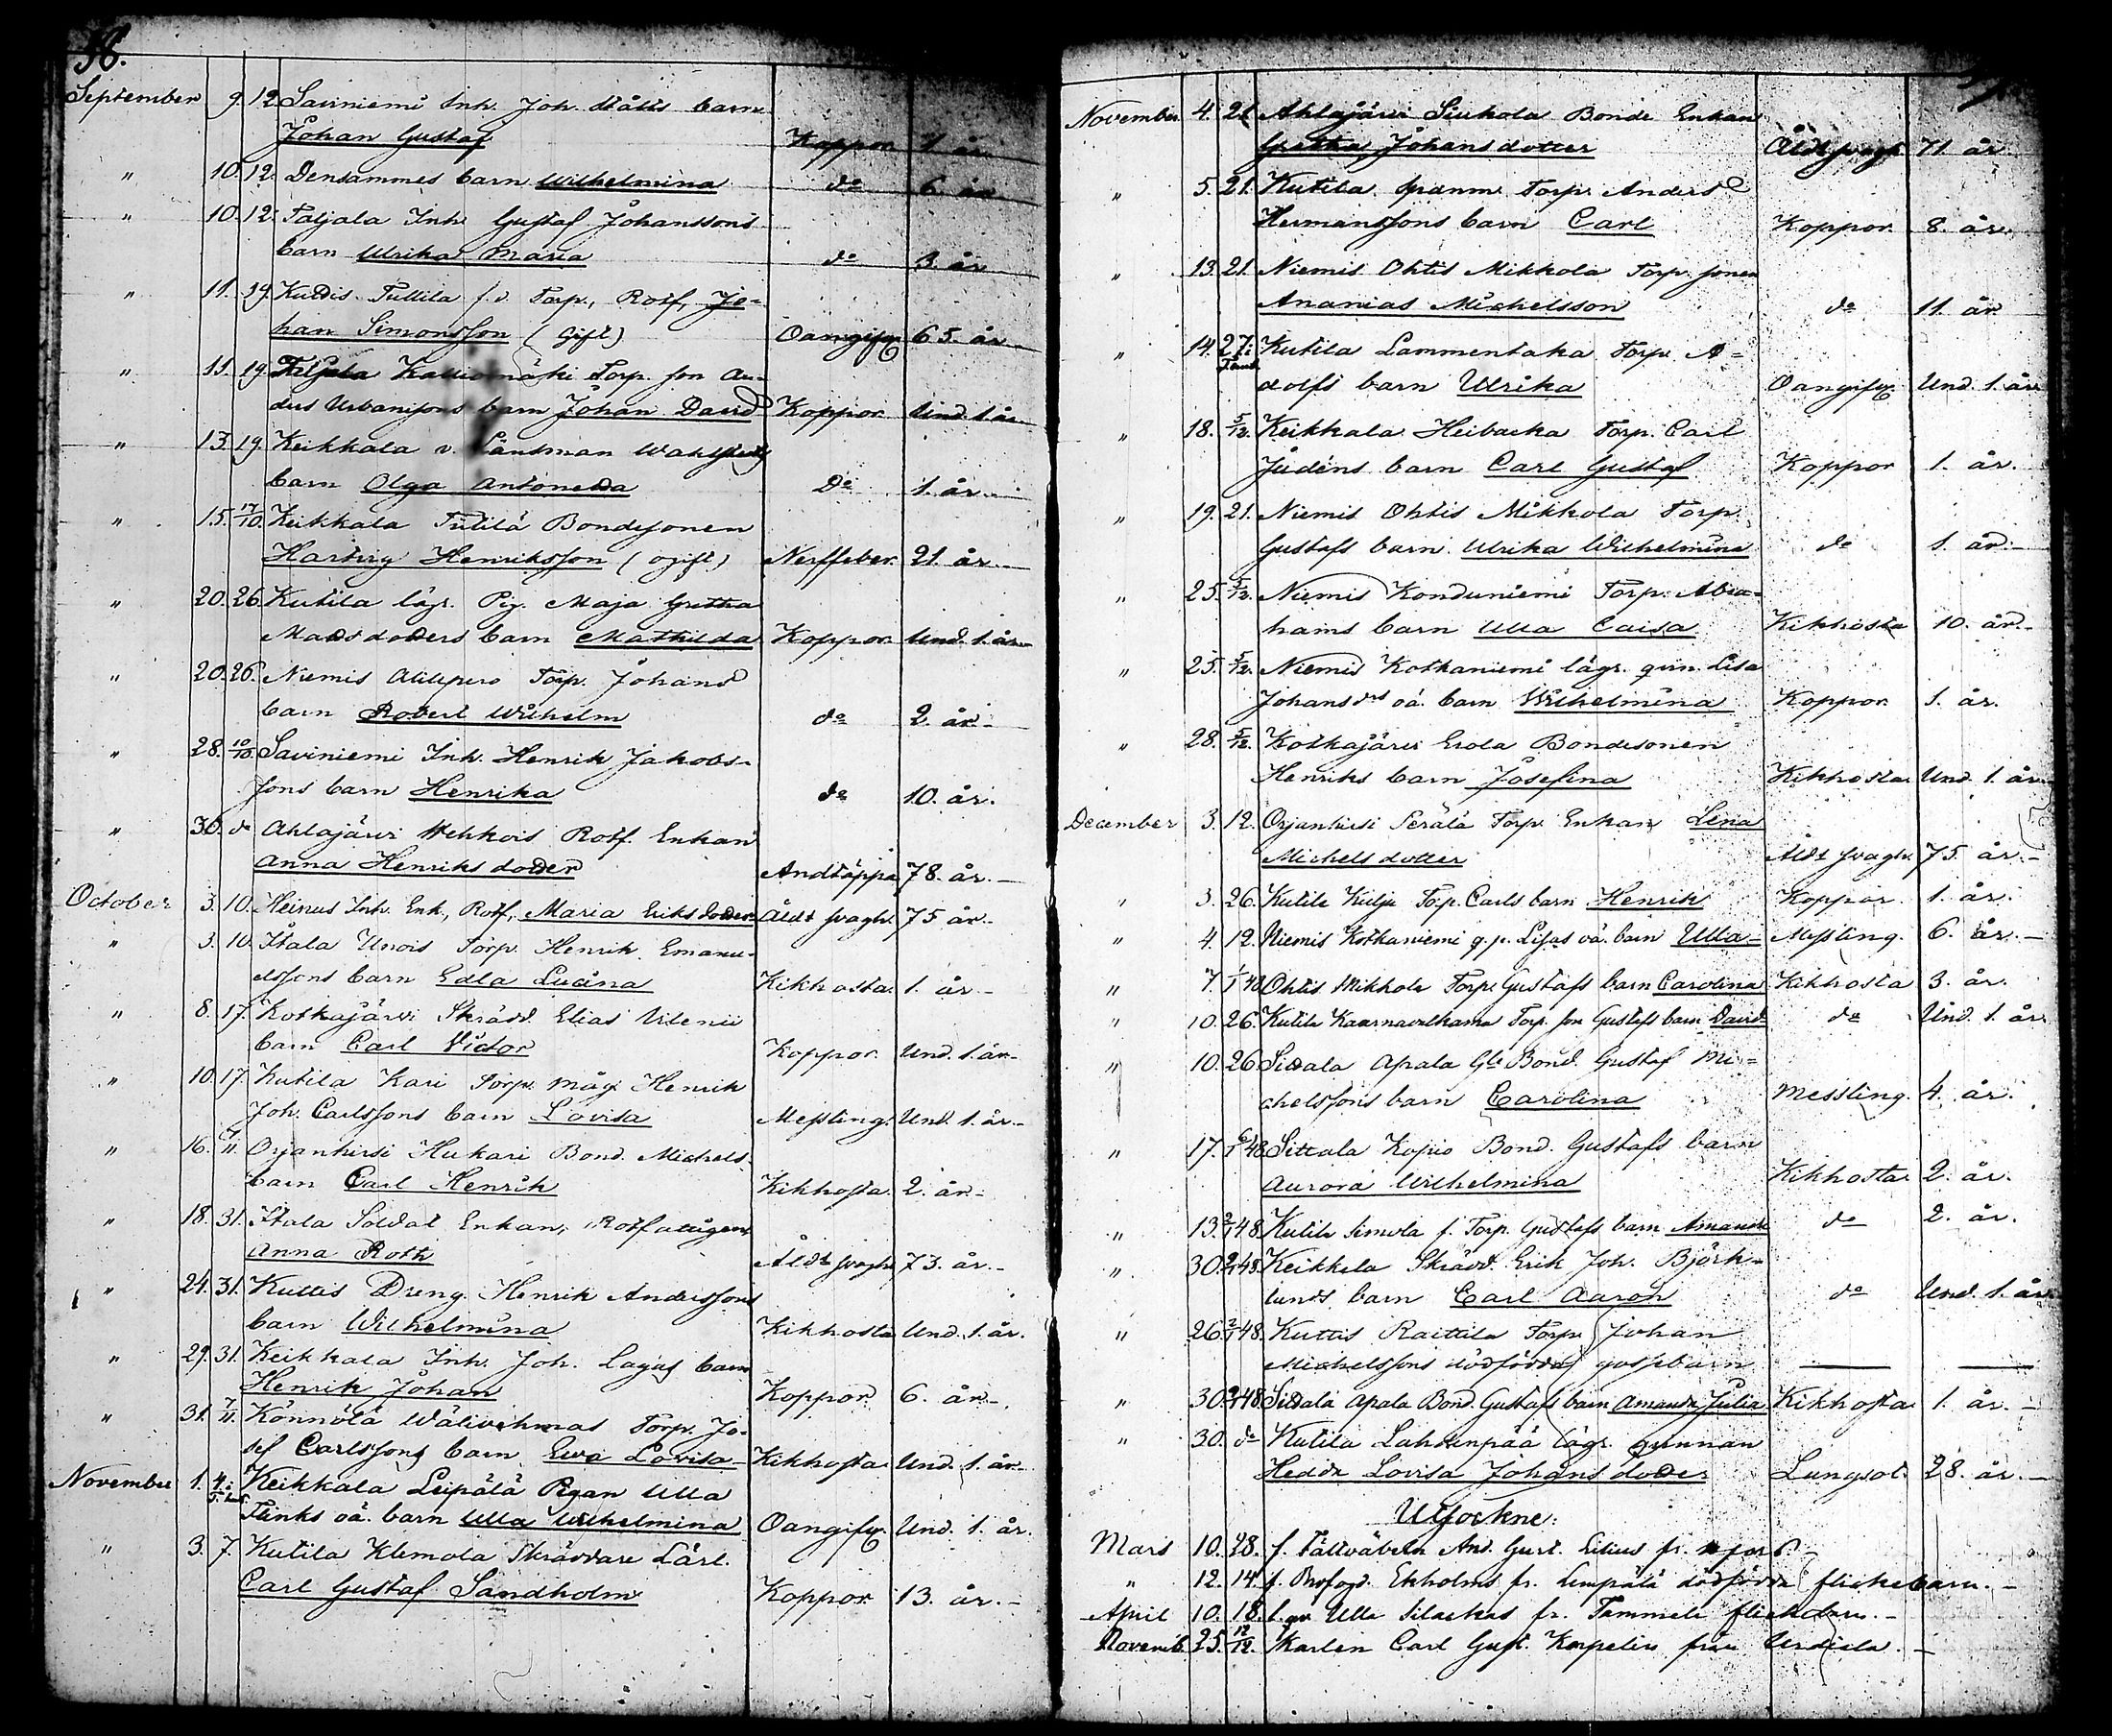 56.
September 9. 12 Saviniemi Inh. Joh. Ståhls barn
Johan Gustaf Koppor 1 år.
" 10. 12. Densammes barn Wilhelmina do 6 år.
" 10. 12. Taljala Inh. Gustaf Johanssons
barn Ulrika Maria do 3. år
" 11. 19. Kuttis Tullila f.d. Torp., Rotf, Jo-
han Simonsson (Gift) Oangifv. 65. år
" 11. 19. Kalliomäki Torp. son An-
ders Urbanssons barn Johan David Koppor Und. 1 år
" 13. 19. Keikkala v. Länsman
barn Olga Antonetta Do 1. år.
" 15. 17/10. Keikkala Tutilä Bondesonen
Hartvig Henriksson (ogift) Nerffeber. 21. år.
" 20. 26. Kutila lägr. Pig. Maja Gretha
Madsdotters barn Mathilda Koppor. Und. 1. år
" 20. 26. Niemis Alilepero Torp. Johans
barn Robert Wilhelm do 2. år.
" 28. 10/10. Saviniemi Inh. Henrik Jakobs-
sons barn Henrika do 10. år.
" 30. do Ahlajärvi Wehkois Rotf. Enkan
Anna Henriksdotter Andtäppa 78. år.
October 3. 10. Heinus Inh. Enk., Rotf, Maria Eriksdotter Åldr svagh. 75 år.
" 3. 10. Ittala Unois Torp. Henrik Emanu-
elssons barn Edla Lucina Kikhosta. 1. år.
" 8. 17. Kotkajärvi Skrädd. Elias Vilenii
barn Carl Victor Koppor. Und. 1. år.
" 10. 17. Kutila Kari Torp. måg Henrik
Joh. Carlssons barn Lovisa Messling. Und. 1. år.
" 16. 7/11. Orjanhirsi Hukari Bond. Michels
barn Carl Henrik Kikhosta. 2. år.
" 18. 31. Ittala Soldat Enkan, Rotfattigen
Anna Roth Åldr svagh. 73. år.
" 24. 31. Kuttis Dreng. Henrik Anderssons
barn Wilhelmina Kikhosta Und. 1. år.
" 29. 31. Keikkala Inh. Joh. Lagus barn
Henrik Johan Koppor. 6. år.
" 31. 7/11. Könnölä Wälivehmas Torp. Jo-
sef Carlssons barn Ewa Lovisa Kikhosta Und. 1. år.
November 1. 4. Keikkala Leipälä Pigan Ulla
Flinks oä. barn Ulla Wilhelmina Oangifv. Und. 1. år.
" 3. 7. Kutila Klemola Skräddare Lärl.
Carl Gustaf Sandholm Koppor 13. år.
November 4. 21. Ahlajärvi Siukola Bonde Enkan
Gretha Johansdotter Åldr svagh 71 år
" 5. 21. Kutila Torp. Anders
Hermanssons barn Carl Koppor. 8. år.
" 13. 21. Niemis Ohtis Mikkola Torp. sonen
Ananias Michelsson do 11. år
" 14. 27. Kutila Lammentaka Torp. A-
dolfs barn Ulrika Oangifv. Und. 1. år
" 18. 5/12. Keikkala Heibacka Torp. Carl
Judéns barn Carl Gustaf Koppor 1. år.
" 19. 21. Niemis Ohtis Mikkola Torp.
Gustafs barn. Ulrika Wilhelmina do 1. år.
" 25. 5/12. Niemis Konduniemi Torp. Abra-
hams barn Ulla Caisa Kikhosta 10. år.
" 25. 5/12. Niemis Kotkaniemi lägr. qvin. Lisa
Johansdrs oä. barn Wilhelmina Koppor 1. år.
" 28. 5/12. Kotkajärvi Erola Bondesonen
Henriks barn Josefina Kikhosta. Und. 1. år.
December 3. 12. Orjanhirsi Perälä Torp. Enkan Lena
Michelsdotter Åldr svagh. 75. år.
" 3. 26. Kutila Kulju Torp. Carls barn Henrik Koppor. 1. år.
" 4. 12. Niemis Kotkaniemi q.p. Lisas oä. barn Ulla Messling. 6. år.
" 7. 1/1 48 Ohtis Mikkola Torp. Gustafs barn Carolina Kikhosta 3. år.
" 10. 26. Kutila Kaarnavalkama Torp. son Gustafs barn David do Und. 1. år
" 10. 26 Sittala Apala Gle Bond. Gustaf Mi-
chelssons barn Carolina Messling. 4. år.
" 17. 6/1 48 Sittala Kopio Bond. Gustafs barn
Aurora Wilhelmina Kikhosta. 2. år.
" 13. 2/1 48. Kutila Simola f. Torp. Gustafs barn Amanda do 2. år.
" 30. 2/1 48. Keikkala Skrädd. Erik Joh. Björk-
lunds barn Carl Aaron do Und. 1. år
" 26. 2/1 48. Kuttis Raittila Torp. Johan
Michelssons dödfödda gossebarn
" 30. 9/1 48. Sittala Apala Bond. Gustafs barn Amanda Julia Kikhosta 1. år.
" 30. do Kutila Lahdenpää lägr. qvinnan
Hedda Lovisa Johansdotter Lungsot. 28. år.
Utsockne:
Mars 10. 28. f. Fältväbeln And. Gust. Lilius fr.
" 12. 14. f. Brofogd. Ekholms fr. Lempälä dödfödda flickebarn.
April 10. 18. Ulla Silackas fr. Tammela flickebarn.
Novemb. 25. 12/12. Karlen Carl Gust. Korpelin från Urdiala.